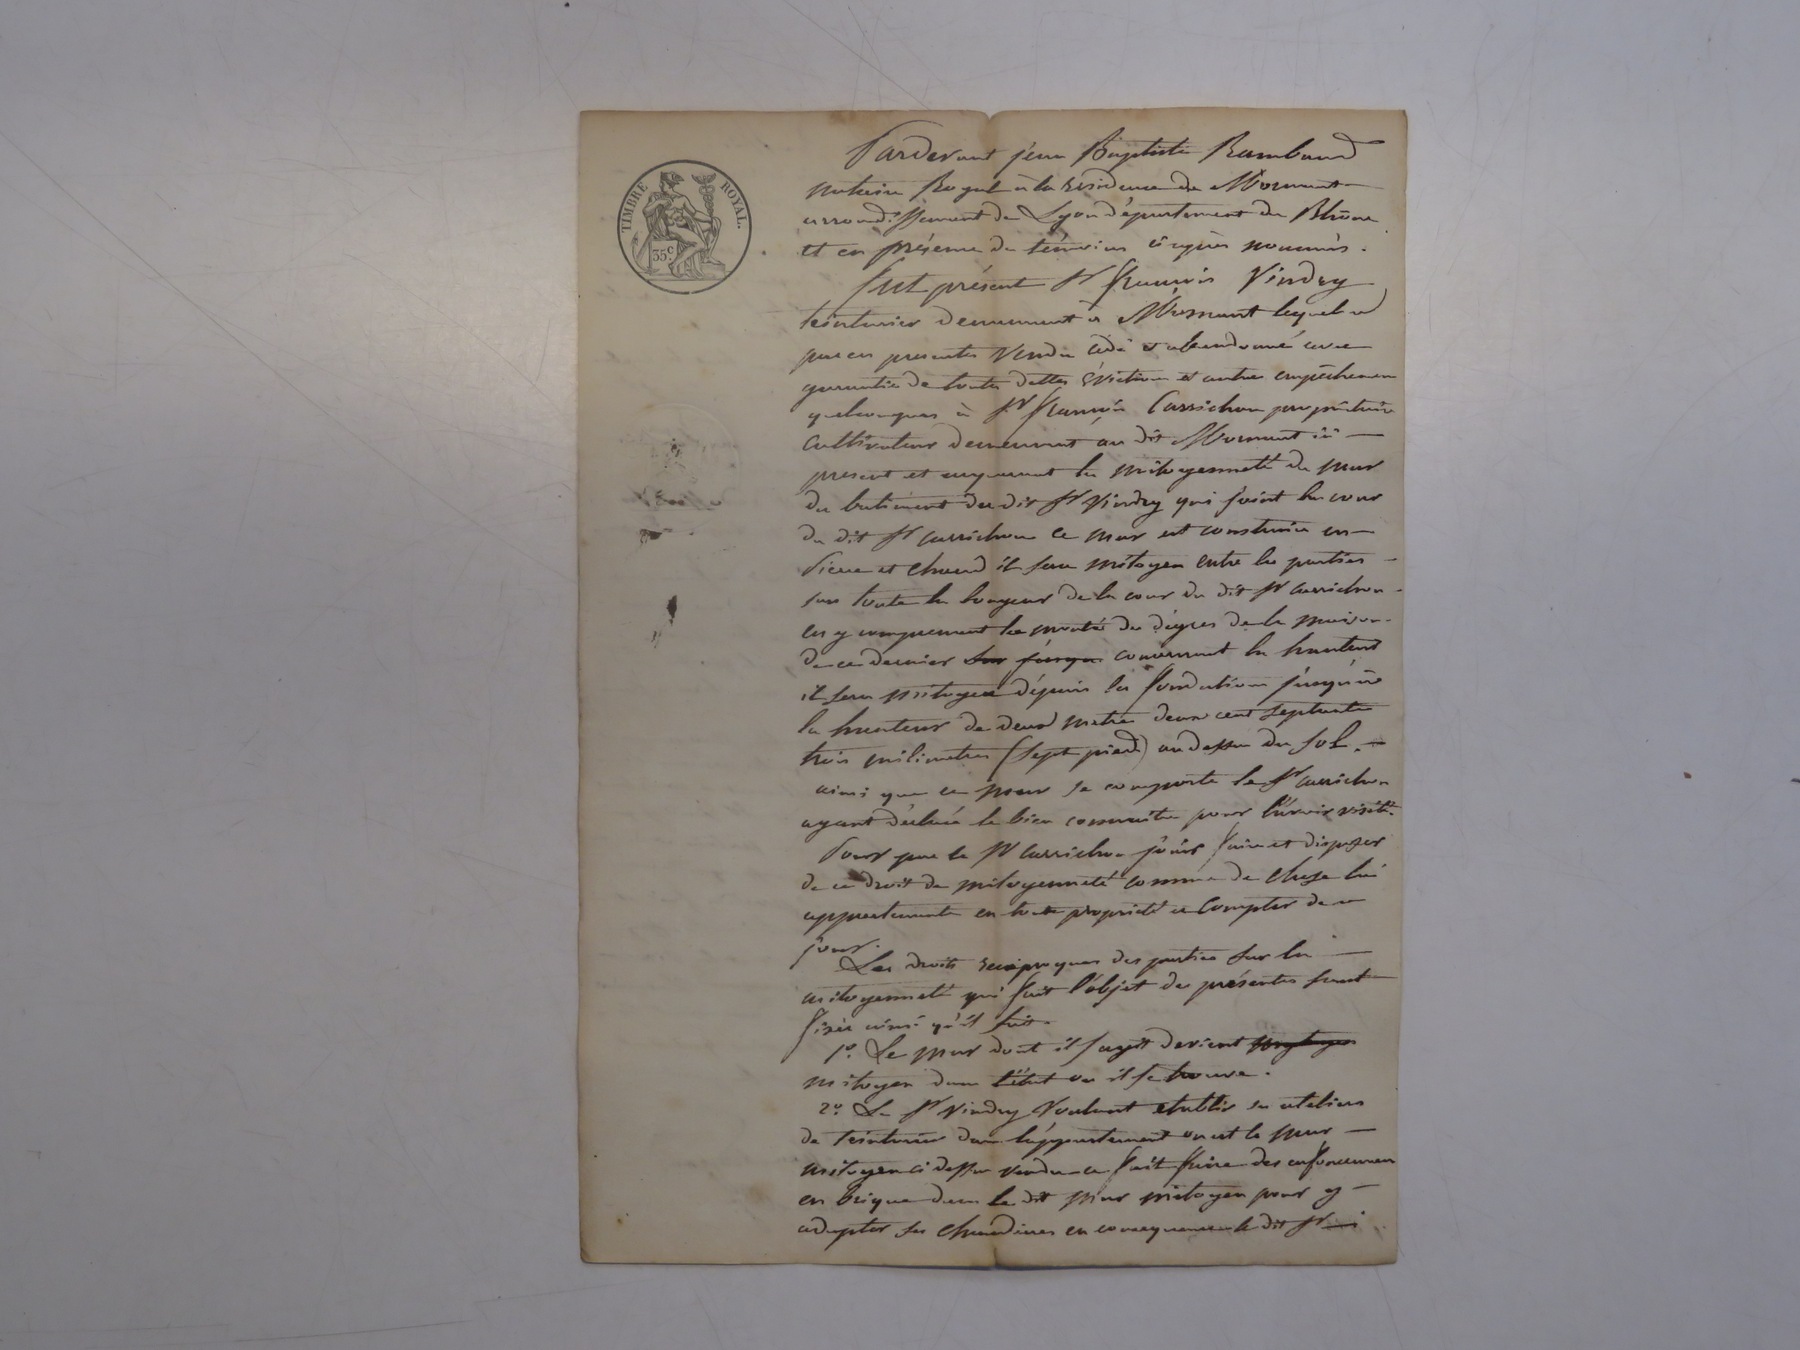 TIMBRE ROYAL.
35 c.
Pardevant jean Baptiste Rambaud
notaire Royal à la residence de Mornant
arrondissement de Lyon département du Rhône
et en présence des témoins ci après nommés.
Fut présent Sr françois Vindry
teinturier demeurant à Mornant lequel a
par ces presentes Vendu cédé et abandonné avec
garantie de toutes dettes évictions et autres empêchemens
quelconques à Sr françois Carrichon propriétaire
Cultivateur demeurant au dit Mornant ici
present et acquerant la mitoyenneté du mur
du batiment du dit Sr Vindry qui joint la cour
du dit Sr carrichon ce mur est construit en
pierre et chaud il sera mitoyen entre les parties
sur toute la longeur de la cour du dit Sr carrichon
en y comprenant la montée des dégres de la maison
de ce dernier concernant la hauteur
il sera mitoyen dépuis les fondations jusqu'à
la hauteur de deux metres deux cent septante
trois milimetres (sept pieds) au dessus du sol.
ainsi que ce mur se comporte le Sr carrichon
ayant déclaré le bien connaitre pour l'avoir visité.
Pour par le Sr Carrichon jouir faire et disposer
de ce droit de mitoyenneté comme de chose lui
appartenante en toute propriété a Compter de ce
jour.
Les droits reciproques des parties sur la
mitoyenneté qui fait l'objet des présentes sont
fixés ainsi qu'il suit.
1o. Le mur dont il sagit devient
mitoyen dans l'état ou il se trouve.
2o Le Sr Vindry Voulant etablir ses ateliers
de teinturier dans l'appartement ou est le mur
mitoyen ci dessus vendu a fait faire des enfoncemens
en brique dans le dit mur mitoyen pour y
adapter ses chaudieres en consequence le dit Sr